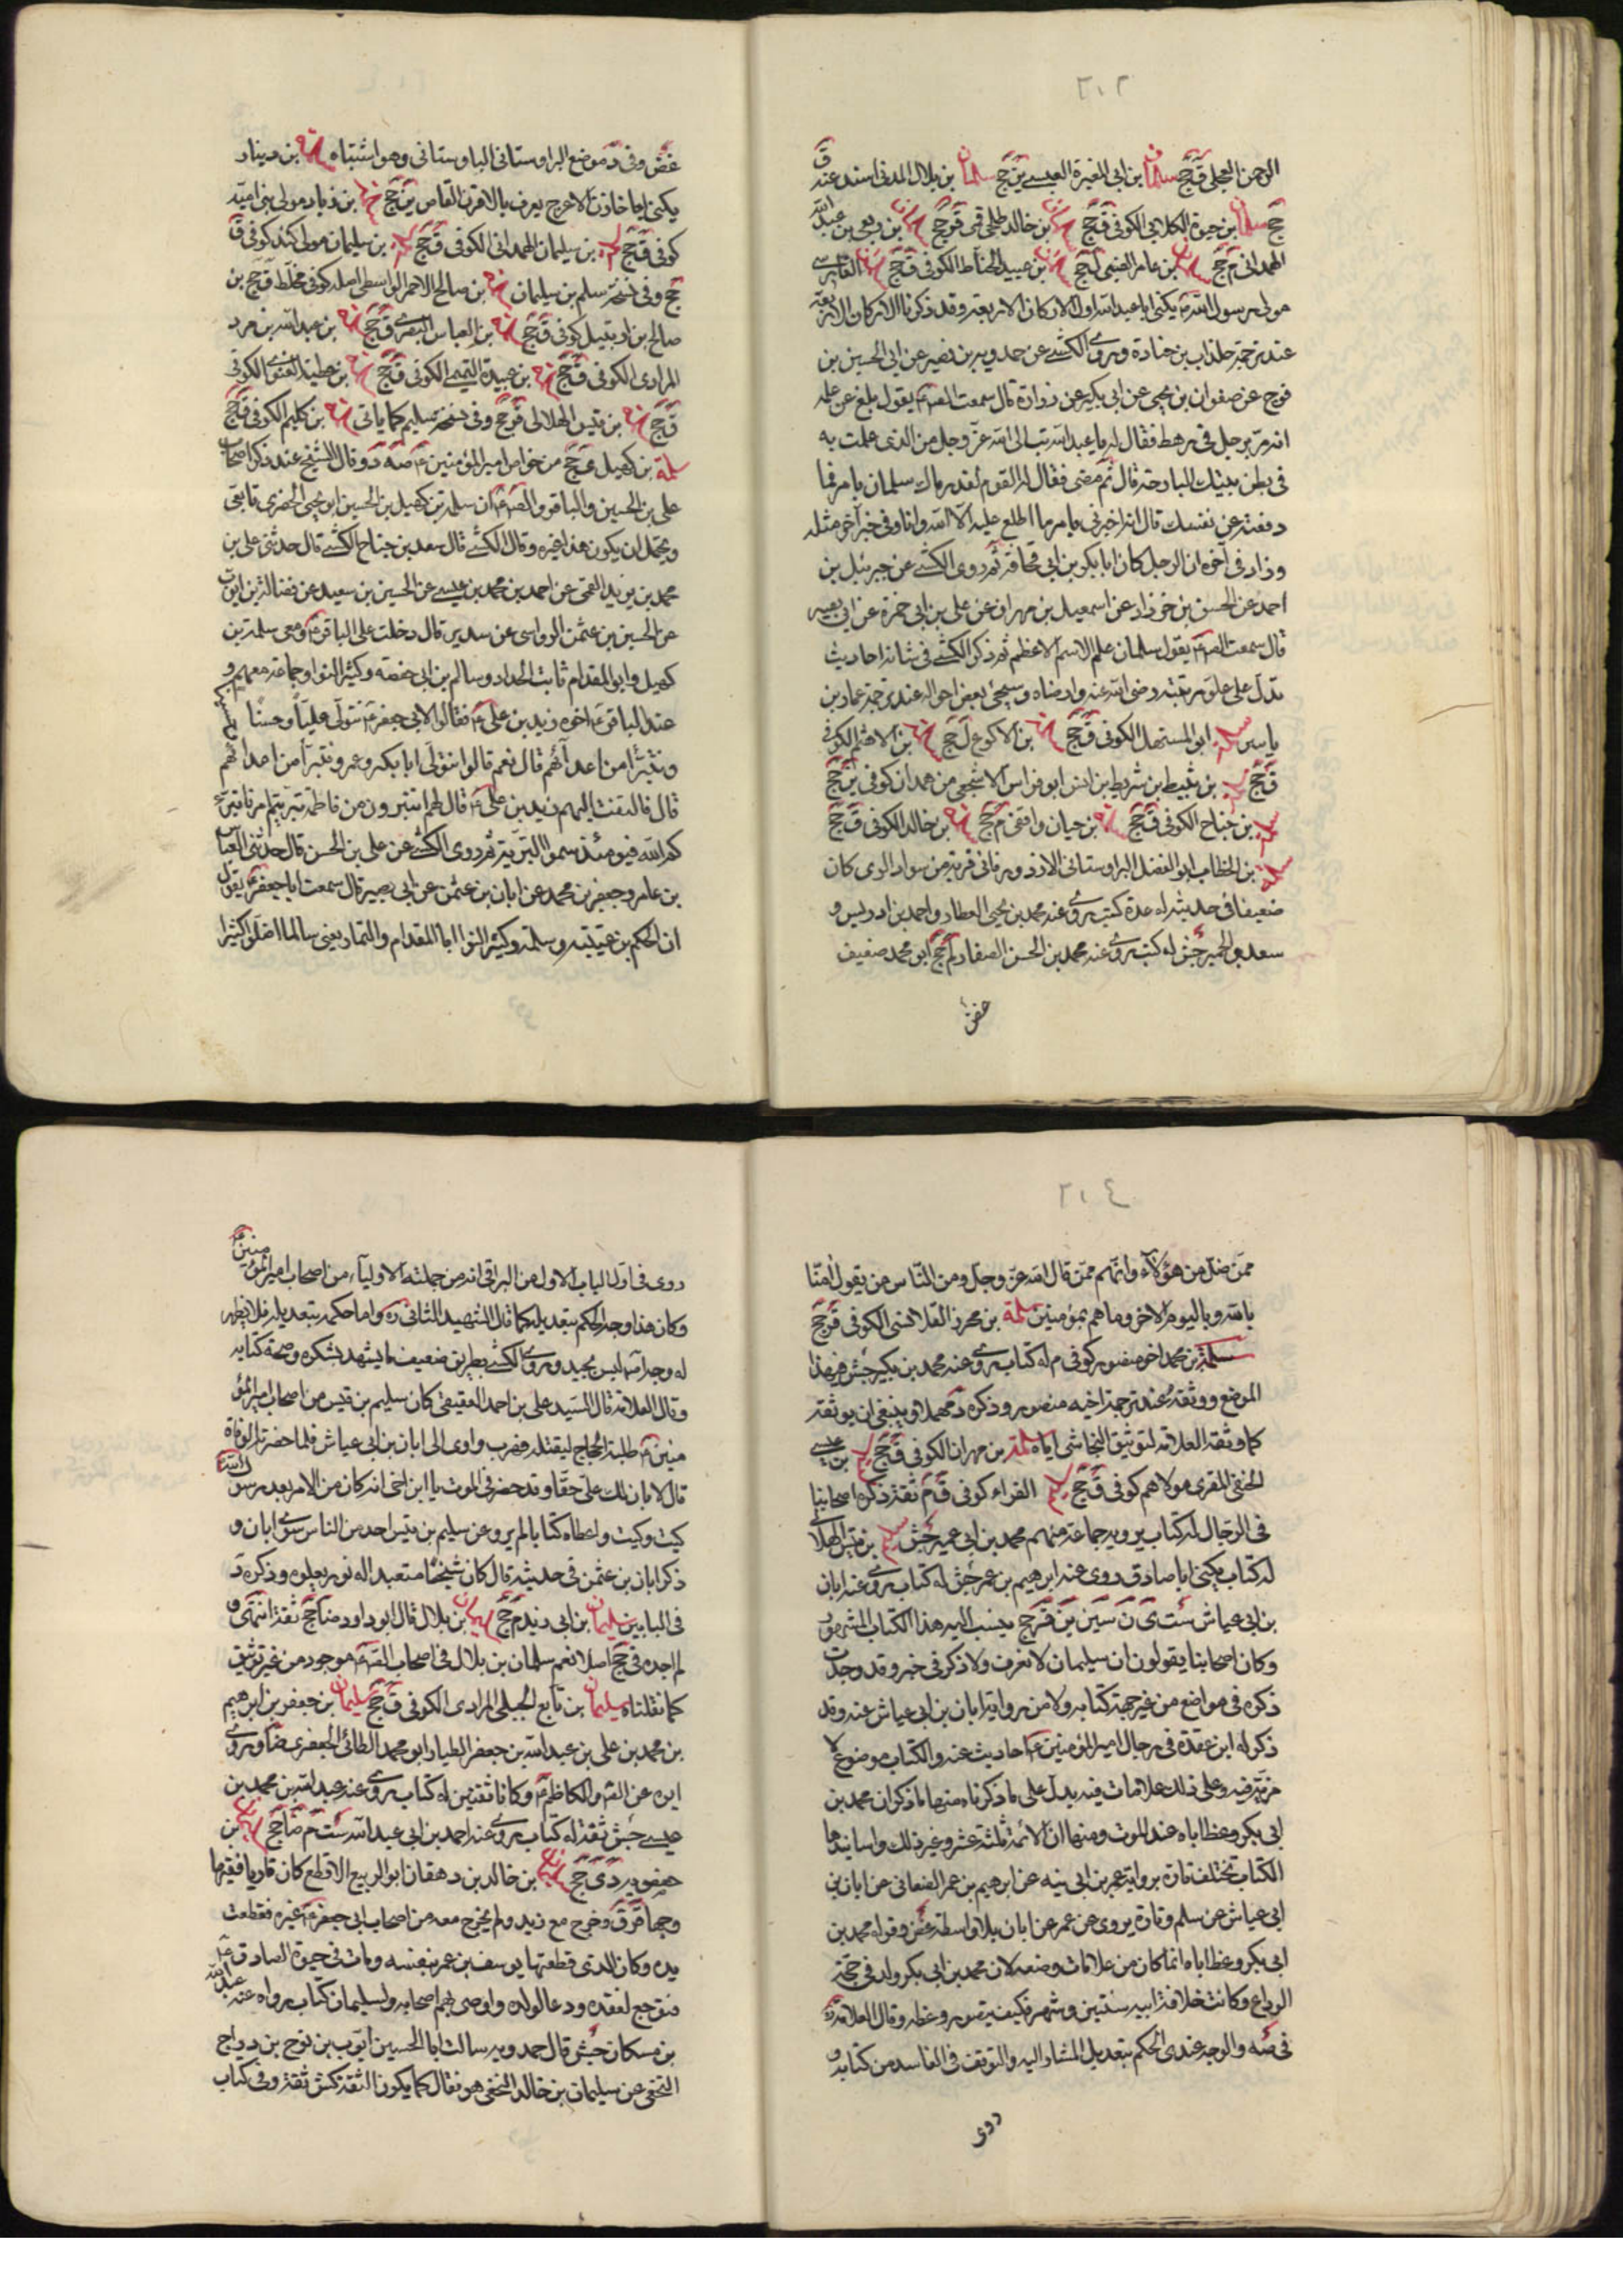 ٢٠٢
الرحمن العجلى ق جج سلمان بن ابى المغيرة العبسى ين جج سلمان بن بلال المدنى اسند عنه ق
جج سلمان بن حيوة الكلابى الكوفى ق جج بن خالد طلحى قمى ق جج بن ربعى بن عبد الله
الهمدانى م جج بن عامر الضبى ل جج بن عبيد الحناط الكوفى ق جج الفارسى
مولى رسول الله ص يكنى ابا عبد الله اول الاركان الاربعة وقد ذكرنا الاركان الاربعة
عند ترجمة جندب بن جنادة وروى الكشى عن حمدويه بن نصير عن ابى الحسين بن
نوح عن صفوان بن يحيى عن ابى بكير عن زرارة قال سمعت الص ع يقول بلغ من علمه
انه مر برجل فى رهط فقال له يا عبد الله تب الى الله عز وجل من الذى عملت به
فى بطن بيتك البارحة قال ثم مضى فقال له القوم لقد رماك سلمان بامر فما
دفعته عن نفسك قال انه اخبرنى بامر ما اطلع عليه الا الله وانا وفى خبر آخر مثله
وزاد فى آخره ان الرجل كان ابا بكر بن ابى قحافة ثم روى الكشى عن جبرئيل بن
احمد عن الحسن بن خرزاد عن اسمعيل بن مهران عن على بن ابى حمزة عن ابى بصير
قال سمعت الص ع يقول سلمان علم الاسم الاعظم ثم ذكر الكشى فى شانه احاديث
تدل على علو مرتبته رضى الله عنه وارضاه وسيجئ بعض احواله عند ترجمة عمار بن
ياسر سلمة ابو المستهل الكوفى ق جج بن الاكوع ل جج بن الاهثم الكوفى
ق جج بن ثبيط بن شريط بن انس ابو فراس الاشجعى من همدان كوفى ين جج
بن جناح الكوفى ق جج بن حيان واقفى م جج بن خالد الكوفى ق جج
سلمة بن الخطاب ابو الفضل البراوستانى الازدورقانى قرية من سواد الرى كان
ضعيفا فى حديثه له عدة كتب روى عنه محمد بن يحيى العطار واحمد بن ادريس و
سعد والحميرى جش له كتب روى عنه محمد بن الحسن الصفار لم جج ابو محمد ضعيف
غض
غض وفى د موضع البراوستانى الباوستانى وهو اشتباه بن دينار
يكنى ابا حازن الاعرج يعرف بالاقرن القاص ين جج بن زياد مولى بنى امية
كوفى ق جج بن سليمان الهمدانى الكوفى ق جج بن سليمان مولى كندة كوفى ق
جج وفى نسخة سلم بن سليمان بن صالح الاحمر الواسطى اصله كوفى مخلط ق جج بن
صالح بن ارتبيل كوفى ق جج بن العباس البصرى ق جج بن عبد الله بن مرد
المرادى الكوفى ق جج بن عبيدة التميمى الكوفى ق جج بن عطية الغنوى الكوفى
ق جج بن قيس الهلالى ق جج وفى نسخة سليم كما ياتى بن كليم الكوفى ق جج
سلمة بن كهيل ى جج من خواص امير المؤمنين ع صه د وقال الشيخ عند ذكر اصحاب
على بن الحسين والباقر والص ع ان سلمة بن كهيل بن الحسين ابو يحيى الحضرمى تابعى
ويحتمل ان يكون هذا غيره وقال الكشى قال سعد بن جناح الكشى قال حدثنى على بن
محمد بن يزيد القمى عن احمد بن محمد بن عيسى عن الحسين بن سعيد عن فضالة بن ايوب
عن الحسين بن عثمن الرواسى عن سدير قال دخلت على الباقر ع ومعى سلمة بن
كهيل وابو المقدام ثابت الحداد وسالم بن ابى حفصة وكثير النوا وجماعة معهم و
عند الباقر ع اخوه زيد بن على ع فقالوا لابى جعفر ع نتولى عليا وحسنا
ونتبرأ من اعدائهم قال نعم قالوا نتولى ابا بكر وعمر ونتبرأ من اعدائهم
قال فالتفت اليهم زيد بن على ع قال لهم اتتبرون من فاطمة تبرتم امرنا تبر
كم الله فيومئذ سموا البترية ثم روى الكشى عن على بن الحسن قال حدثنى العباس
بن عامر وجعفر بن محمد عن ابان بن عثمن عن ابى بصير قال سمعت ابا جعفر ع يقول
ان الحكم بن عتيبة وسلمة وكثير النوا ابا المقدام والتمار يعنى سالما اضلوا كثيرا
٢٠٤
ممن ضل من هؤلاء وانهم ممن قال الله عز وجل ومن الناس من يقول امنا
بالله وباليوم الاخر وما هم بمؤمنين سلمة بن محرز القلانسى الكوفى ق جج
سلمة بن محمد اخو منصور كوفى م له كتاب روى عنه محمد بن بكير جش فى هذا
الموضع ووثقه عند ترجمة اخيه منصور وذكره د مهملا وينبغى ان يوثقه
كما وثقه العلامة لتوثيق النجاشى اياه سلمة بن مهران الكوفى ق جج بن عيسى
الحنفى المقرى مولاهم كوفى ق جج الفراء كوفى ق م ثقة ذكره اصحابنا
فى الرجال له كتاب يرويه جماعة منهم محمد بن ابى عمير جش سليم بن قيس الهلالى
له كتاب يكنى ابا صادق روى عنه ابرهيم بن عمر جش له كتاب روى عنه ابان
بن ابى عياش ست ى ن سين ين قر جج ينسب اليه هذا الكتاب المشهور
وكان اصحابنا يقولون ان سليمان لا نعرف ولا ذكر فى خبر وقد وجدت
ذكره فى مواضع من غير جهة كتابه ولا من رواية ابان بن ابى عياش عنه وقد
ذكر له ابن عقدة فى رجال امير المؤمنين ع احاديث عنه والكتاب موضوع لا
مرية فيه وعلى ذلك علامات فيه يدل على ما ذكرناه منها ما ذكر ان محمد بن
ابى بكر وعظ اباه عند الموت ومنها ان الائمة ثلثة عشر وغير ذلك واسانيد هذا
الكتاب تختلف تارة برواية عمر بن اذينه عن ابرهيم بن عمر الصنعانى عن ابان بن
ابى عياش عن سلم وتارة يروى عن عمر عن ابان بلا واسطة غض وقوله محمد بن
ابى بكر وعظ اباه انما كان من علامات وضعه لان محمد بن ابى بكر ولد فى حجة
الوداع وكانت خلافة ابيه سنتين وشهرا فكيف يتصور وعظه وقال العلامة ره
فى صه والوجه عندى الحكم بتعديل المشار اليه والتوقف فى الفاسد من كتابه و
روى
روى فى اول الباب الاول عن البراقى انه من جملة الاولياء من اصحاب امير المؤمنين ع
وكان هذا وجه الحكم بتعديله كما قال الشهيد الثانى ره واما حكمه بتعديله فلا يظهر
له وجه اصلا ليس بجيد وروى الكشى بطريق ضعيف ما يشهد بشكره وصحة كتابه
وقال العلامة قال السيد على بن احمد العقيقى كان سليم بن قيس من اصحاب امير المؤ
منين ع طلبه الحجاج ليقتله فهرب واوى الى ابان بن ابى عياش فلما حضرته الوفاة
قال لابان لك على حقا وقد حضرنى الموت يا ابن اخى انه كان من الامر بعد رسول الله
كيت وكيت واعطاه كتابا لم يرو عن سليم بن قيس احد من الناس سوى ابان و
ذكر ابان بن عثمن فى حديثه قال كان شيخا متعبدا له نور يعلوه وذكره د
فى البابين سليمان بن ابى زيد م جج بن بلال قال ابو داود ضا جج ثقة انتهى و
لم اجده فى جج اصلا نعم سلمان بن بلال فى اصحاب الص ع موجود من غير توثيق
كما نقلناه سليمان بن تابع الجبلى المرادى الكوفى ق جج سليمان بن جعفر بن ابرهيم
بن محمد بن على بن عبد الله بن جعفر الطيار ابو محمد الطائى الجعفرى ضا وروى
ابوه عن الص والكاظم ع وكانا ثقتين له كتاب روى عنه عبد الله بن محمد بن
عيسى جش ثقة له كتاب روى عنه احمد بن ابى عبد الله ست م ضا جج بن
حفصويه دى جج بن خالد بن دهقان ابو الربيع الاقطع كان قاريا فقيها
وجها ق وخرج مع زيد ولم يخرج معه من اصحاب ابى جعفر ع غيره فقطعت
يده وكان الذى قطعها يوسف بن عمر بنفسه ومات فى حيوة الصادق ع
فتوجع لفقده ودعا لولده واوصى بهم اصحابه ولسليمان كتاب رواه عنه عبد الله
بن مسكان جش قال حمدويه سالت ابا الحسين ايوب بن نوح بن دراج
النخعى عن سليمان بن خالد النخعى هو فقال كما يكون الثقة كش ثقة وفى كتاب